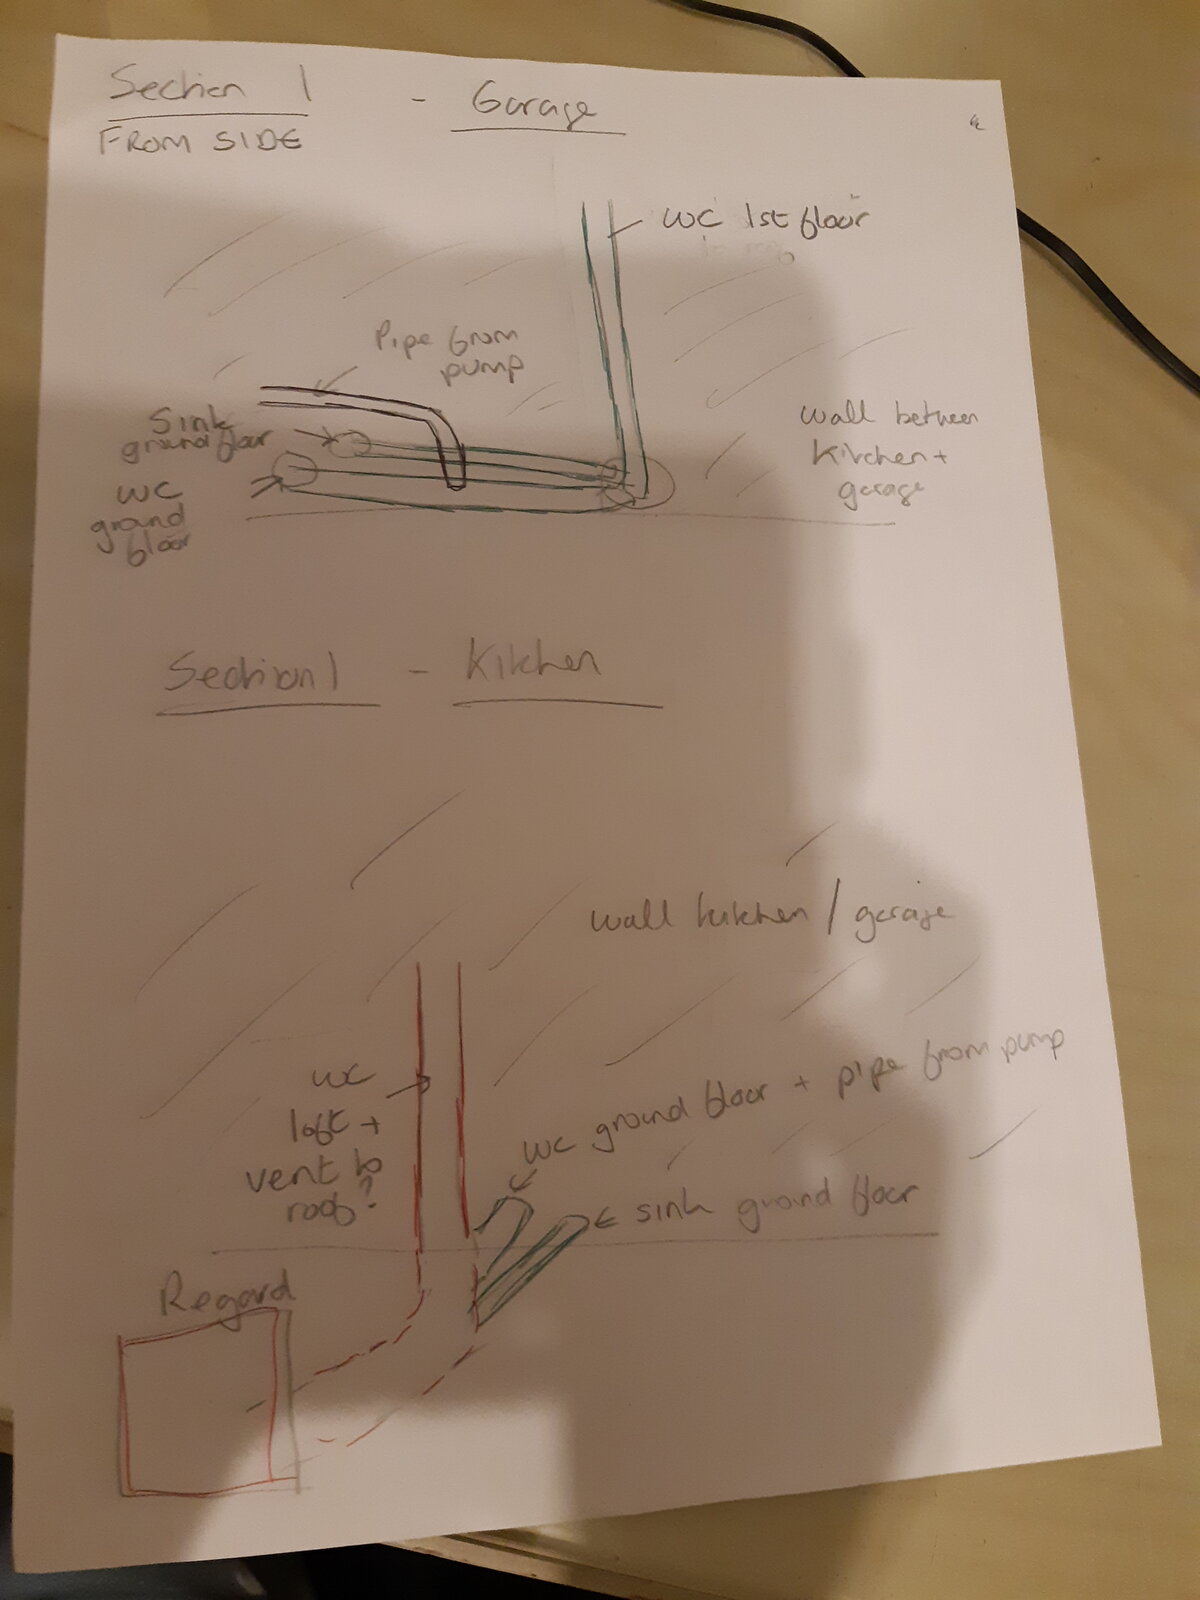 Section 1 - Garage
FROM SIDE
WC 1st floor
Pipe from
pump
Sink
ground floor
WC
ground
floor
Wall between
Kitchen +
garage
Section 1 - Kitchen
Wall kitchen / garage
WC
loft +
vent to
roof?
WC ground floor + pipe from pump
sink ground floor
Regard